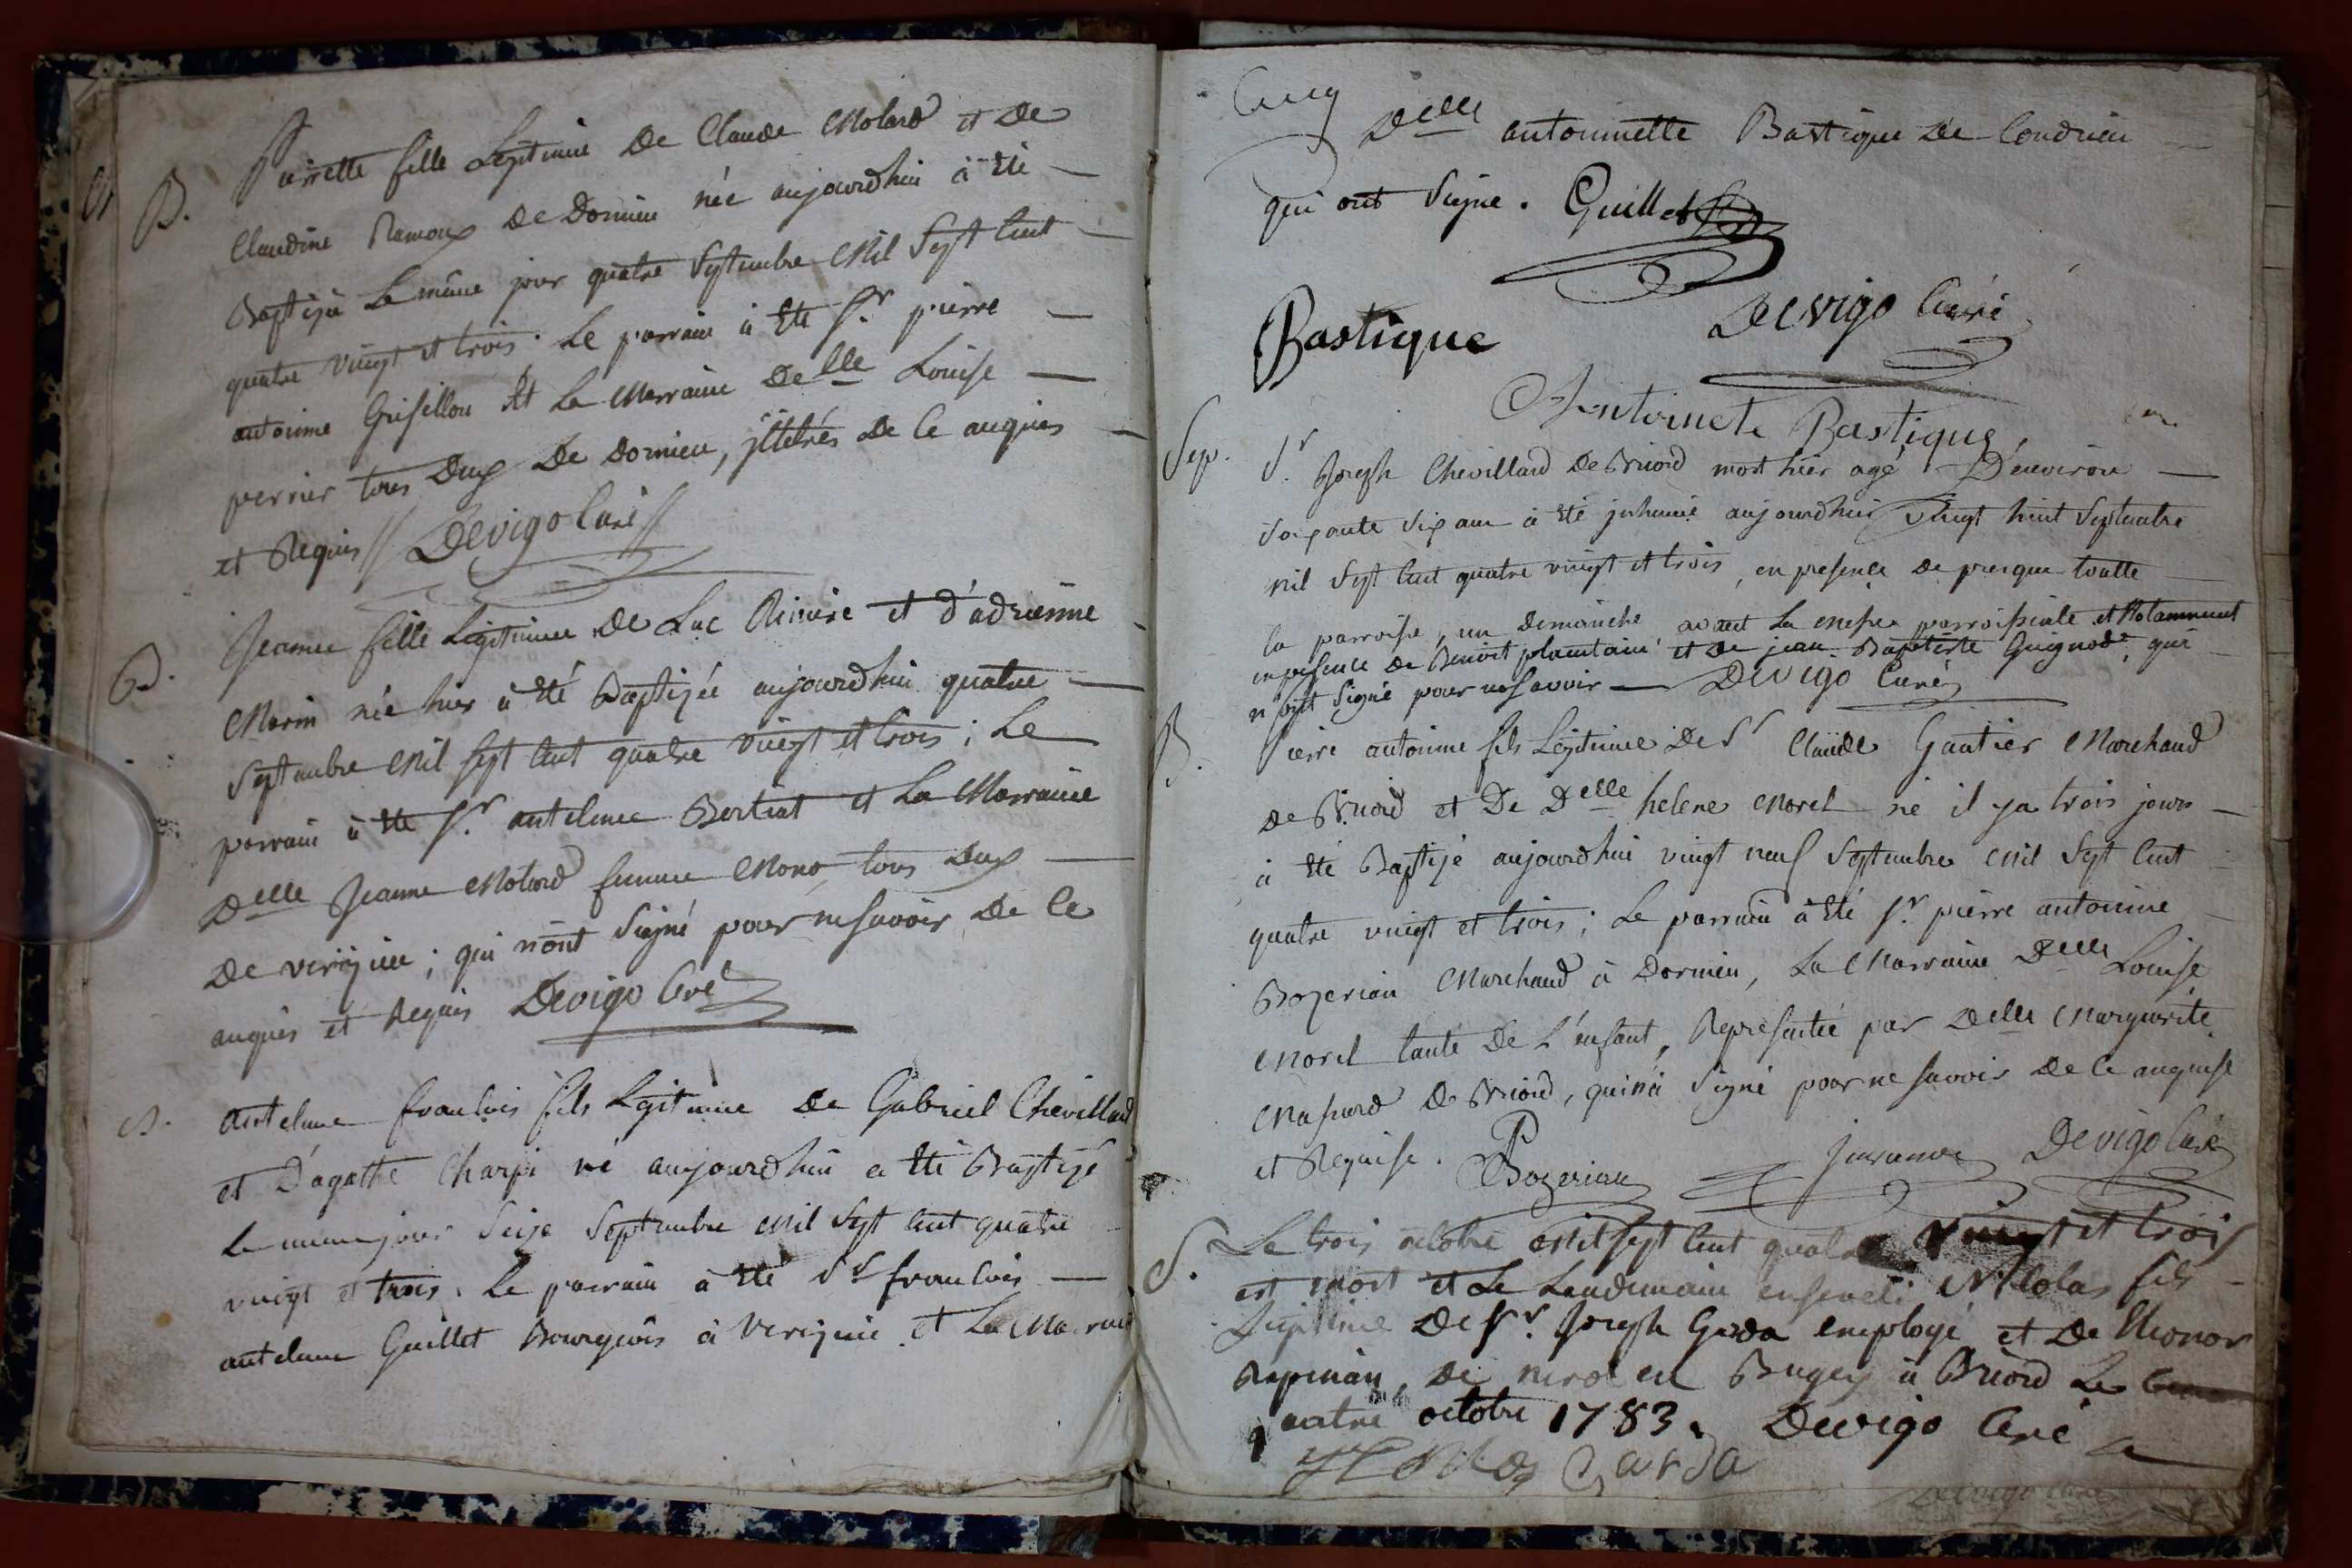 B. Pierrette fille Legitime De Claude Molard et De
Claudine Ramoux De Dornieu née aujourdhui à Eté
Baptisée Le même jour quatre Septembre Mil Sept Cent
quatre vingt et trois. Le parrain à Eté Sr. pierre
antoinne Grisellon Et La Marraine Delle Louise
perrier tous Deux De Dornieu, jlletrés De Ce anquis
et Requis // Devigo Curé //
B. Jeanne fille Legitime De Luc Riviere et d'adrienne
Marin née hier à Eté Baptisée aujourdhui quatre
Septembre Mil Sept Cent quatre vingt et trois; Le
parrain à Eté Sr. antelme Bertrat et La Marraine
Delle Jeanne Molard femme tous Deux
De verizieu; qui nont Signé pour ne Savoir De Ce
anquis et Requis Devigo Cré
B. antelme francois fils Legitime De Gabriel Chevillard
et D'agathe Charpi né aujourdhui a Eté Baptisé
Le meme jour Seize Septembre Mil Sept Cent quatre
vingt et trois. Le parrain à Eté Sr francois
antelme Guillet Bourgeois à Verizieu et La Marraine
Cinq
Delle antoinnette Bastique De Condrieu
qui ont Signé. Guillet
Bastique Devigo Curé
Antoinete Bastique
Sep. Sr. Joseph Chevillard De Briord mort hier agé D'environ
Soixante Six ans à Eté jnhumé aujourdhui vingt huit Septembre
mil Sept Cent quatre vingt et trois, en presence De presque toutte
la parroisse, un Dimanche avant La Messe parroissiale et Notamment
en presence De Benoit plantain et De jean Baptiste Guignod, qui
n'ont Signé pour ne Savoir — Devigo Curé
B. Pierre antoinne fils Legitime De Sr Claude Gautier Marchand
De Briord et De Delle helene Morel né il ya trois jours
à Eté Baptisé aujourdhui vingt neuf Septembre Mil Sept Cent
quatre vingt et trois; Le parrain à Eté Sr. pierre antoinne
Bozerian Marchand à Dornieu, La Marraine Delle Louise
Morel tante De L'enfant, Representée par Delle Marguerite
De Briord, qui n'a Signé pour ne Savoir De Ce anquise
et Requise. P Bozerian Devigo Curé
S. Le trois octobre Mil Sept Cent quatre vingt et trois
est mort et Le Lendemain enseveli Nicolas fils
Legitime De Sr. Joseph Garda employé et De
De en Bugey à Briord Le
quatre octobre 1783. Devigo Curé
Garda
Devigo Curé